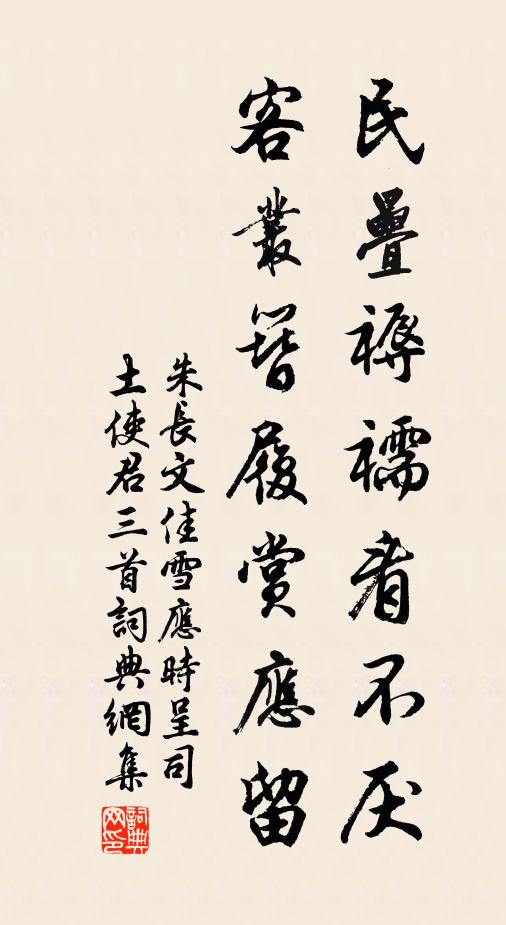 民疊褲襦看不厌
客叢簪履賞應留
朱長文佳雪應時呈司
土使君三首詞典網集
詞典
网印